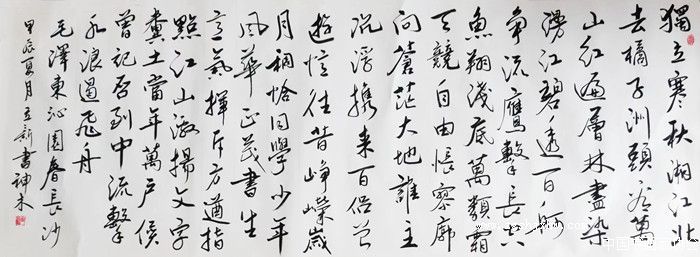 獨立寒秋湘江北
去橘子洲頭看萬
山紅遍層林盡染
漫江碧透百舸
争流鷹擊長空
魚翔淺底萬類霜
天競自由悵寥廓
問蒼茫大地誰主
沉浮携来百侣曾
遊憶往昔崢嶸歲
月稠恰同學少年
風華正茂書生
意氣揮斥方遒指
點江山激揚文字
糞土當年萬户侯
曾記否到中流擊
水浪遏飛舟
毛澤東沁園春長沙
甲辰夏月立新書神木